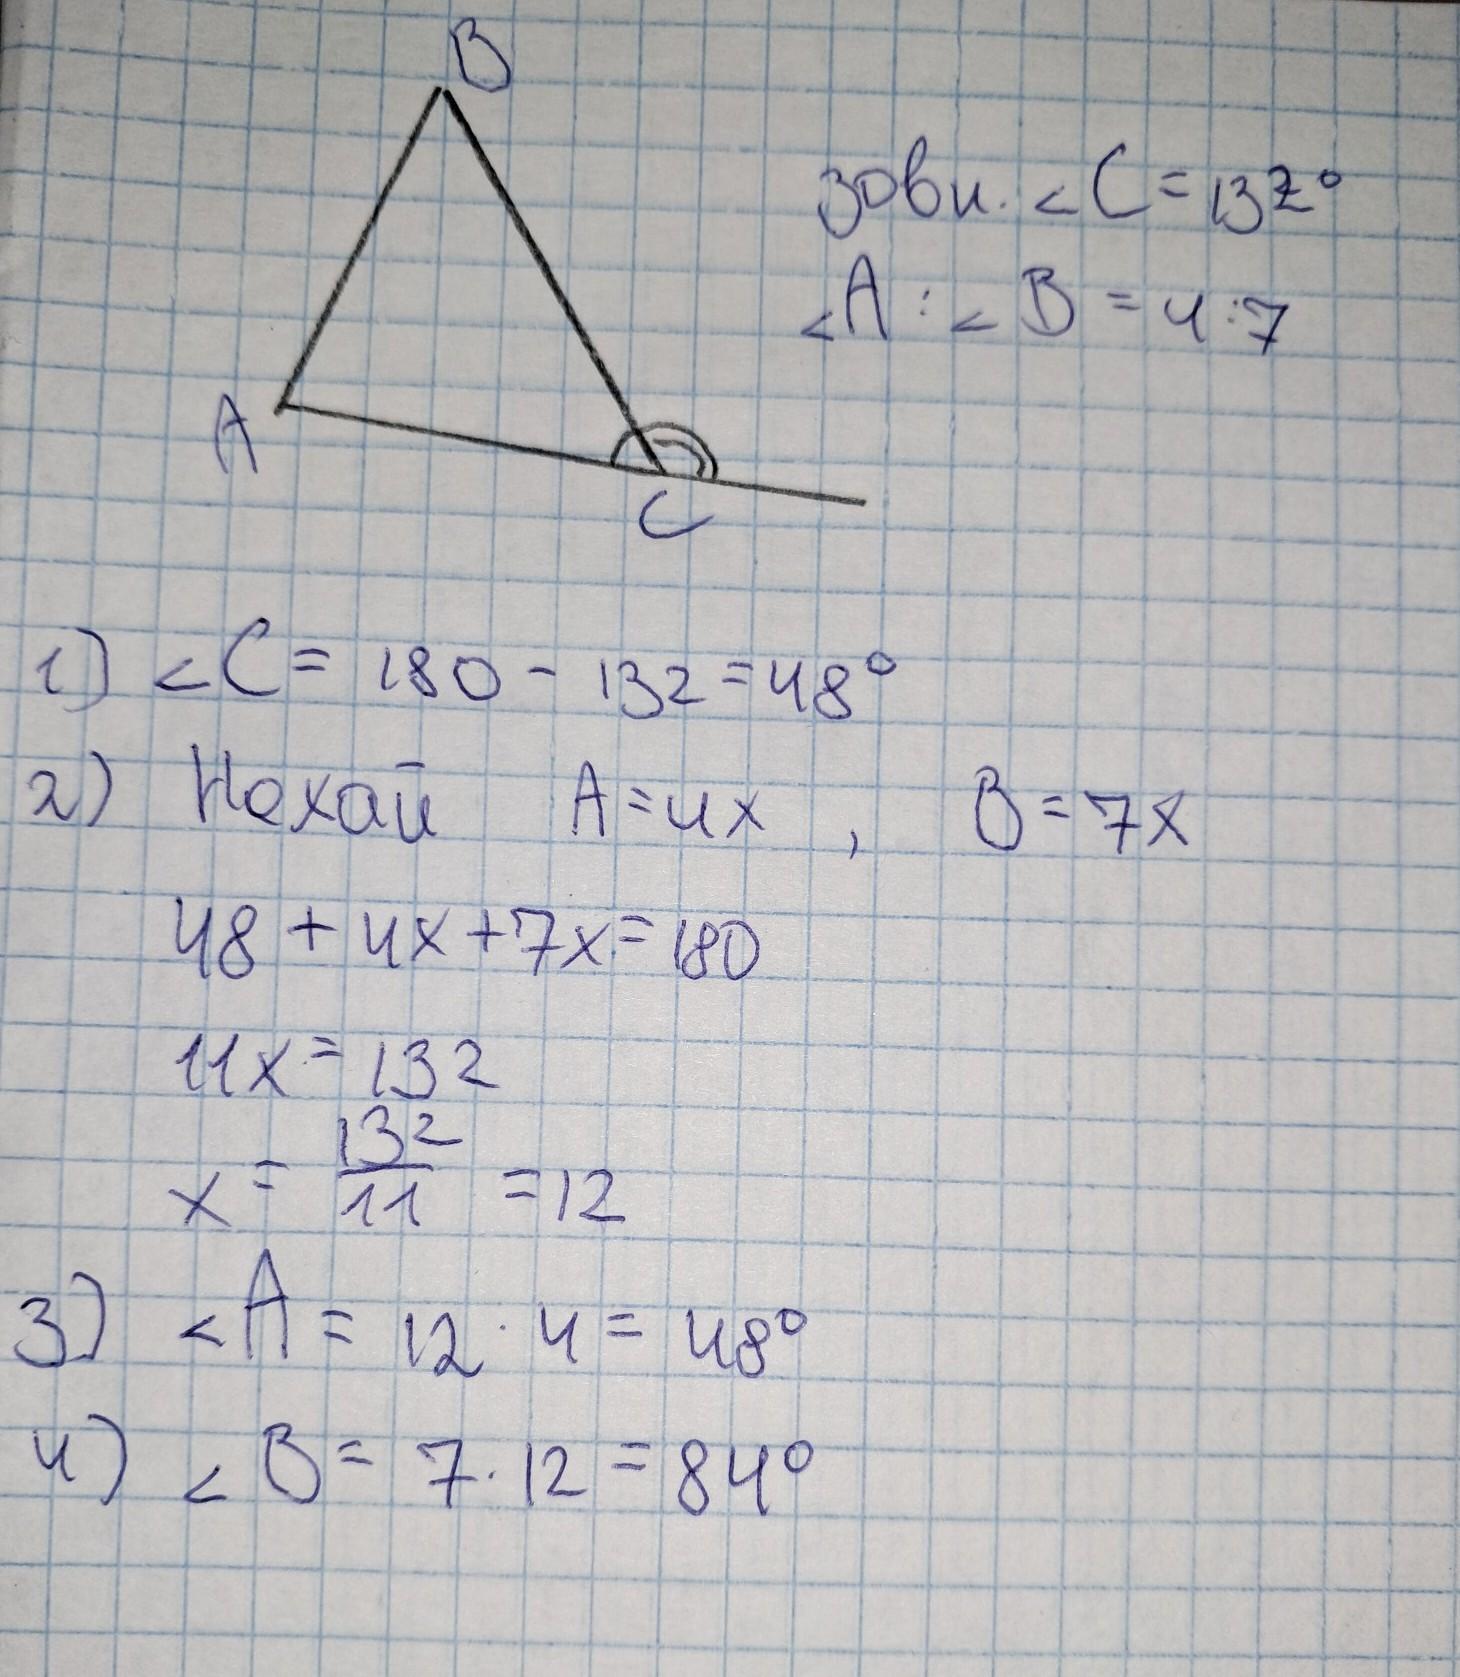 B
зовн. <C = 132°
<A : <B = 4:7
A
C
1) <C = 180 - 132 = 48°
2) Нехай A = 4x , B = 7x
48 + 4x + 7x = 180
11x = 132
x = 132/11 = 12
3) <A = 12 · 4 = 48°
4) <B = 7 · 12 = 84°